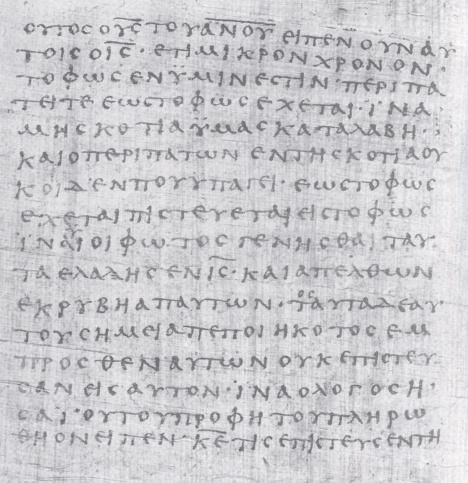 ΟΥΤΟϹΟΥ̅Ϲ̅ΤΟΥΑ̅Ν̅Ο̅Υ̅ΕΙΠΕΝΟΥΝΑΥ
ΤΟΙϹΟΙ̅Ϲ̅·ΕΤΙΜΙΚΡΟΝΧΡΟΝΟΝ·
ΤΟΦΩϹΕΝΫΜΙΝΕϹΤΙΝ·ΠΕΡΙΠΑ
ΤΕΙΤΕΕΩϹΤΟΦΩϹΕΧΕΤΑΙ·ΪΝΑ
ΜΗϹΚΟΤΙΑΫΜΑϹΚΑΤΑΛΑΒΗ·
ΚΑΙΟΠΕΡΙΠΑΤΩΝΕΝΤΗϹΚΟΤΙΑΟΥ
ΚΟΙΔΕΝΠΟΥΥΠΑΓΕΙ·ΕΩϹΤΟΦΩϹ
ΕΧΕΤΑΙΠΙϹΤΕΥΕΤΑΙΕΙϹΤΟΦΩϹ
ΪΝΑΥΙΟΙΦΩΤΟϹΓΕΝΗϹΘΑΙΤΑΥ
ΤΑΕΛΑΛΗϹΕΝΙ̅Ϲ̅·ΚΑΙΑΠΕΛΘΩΝ
ΕΚΡΥΒΗΑΠΑΥΤΩΝ·ΤΟϹΑΥΤΑΔΕΑΥ
ΤΟΥϹΗΜΕΙΑΠΕΠΟΙΗΚΟΤΟϹΕΜ
ΠΡΟϹΘΕΝΑΥΤΩΝΟΥΚΕΠΙϹΤΕΥ
ϹΑΝΕΙϹΑΥΤΟΝ·ΪΝΑΟΛΟΓΟϹΗ·
ϹΑΪΟΥΤΟΥΠΡΟΦΗΤΟΥΠΛΗΡΩ
ΘΗΟΝΕΙΠΕΝ·Κ̅Ε̅ΤΙϹΕΠΙϹΤΕΥϹΕΝΤΗ